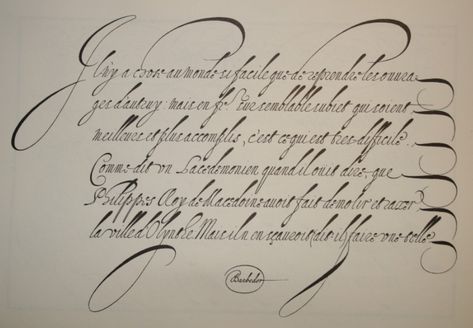 Il n'y a chose au monde si facile que de reprendre les ouura-
ges d'autruy: mais en fe. sur semblable subiet qui soient
meilleurs et plus accomplis, c'est ce qui est tres difficile.
Comme dit vn Lacedemonien quand il ouit dire, que
Philippes Roy de Macedoine auoit fait demolir et razer
la ville d'Olynthe Mais il n'en sçauroit (dit-il) faire vne telle
Barbedor